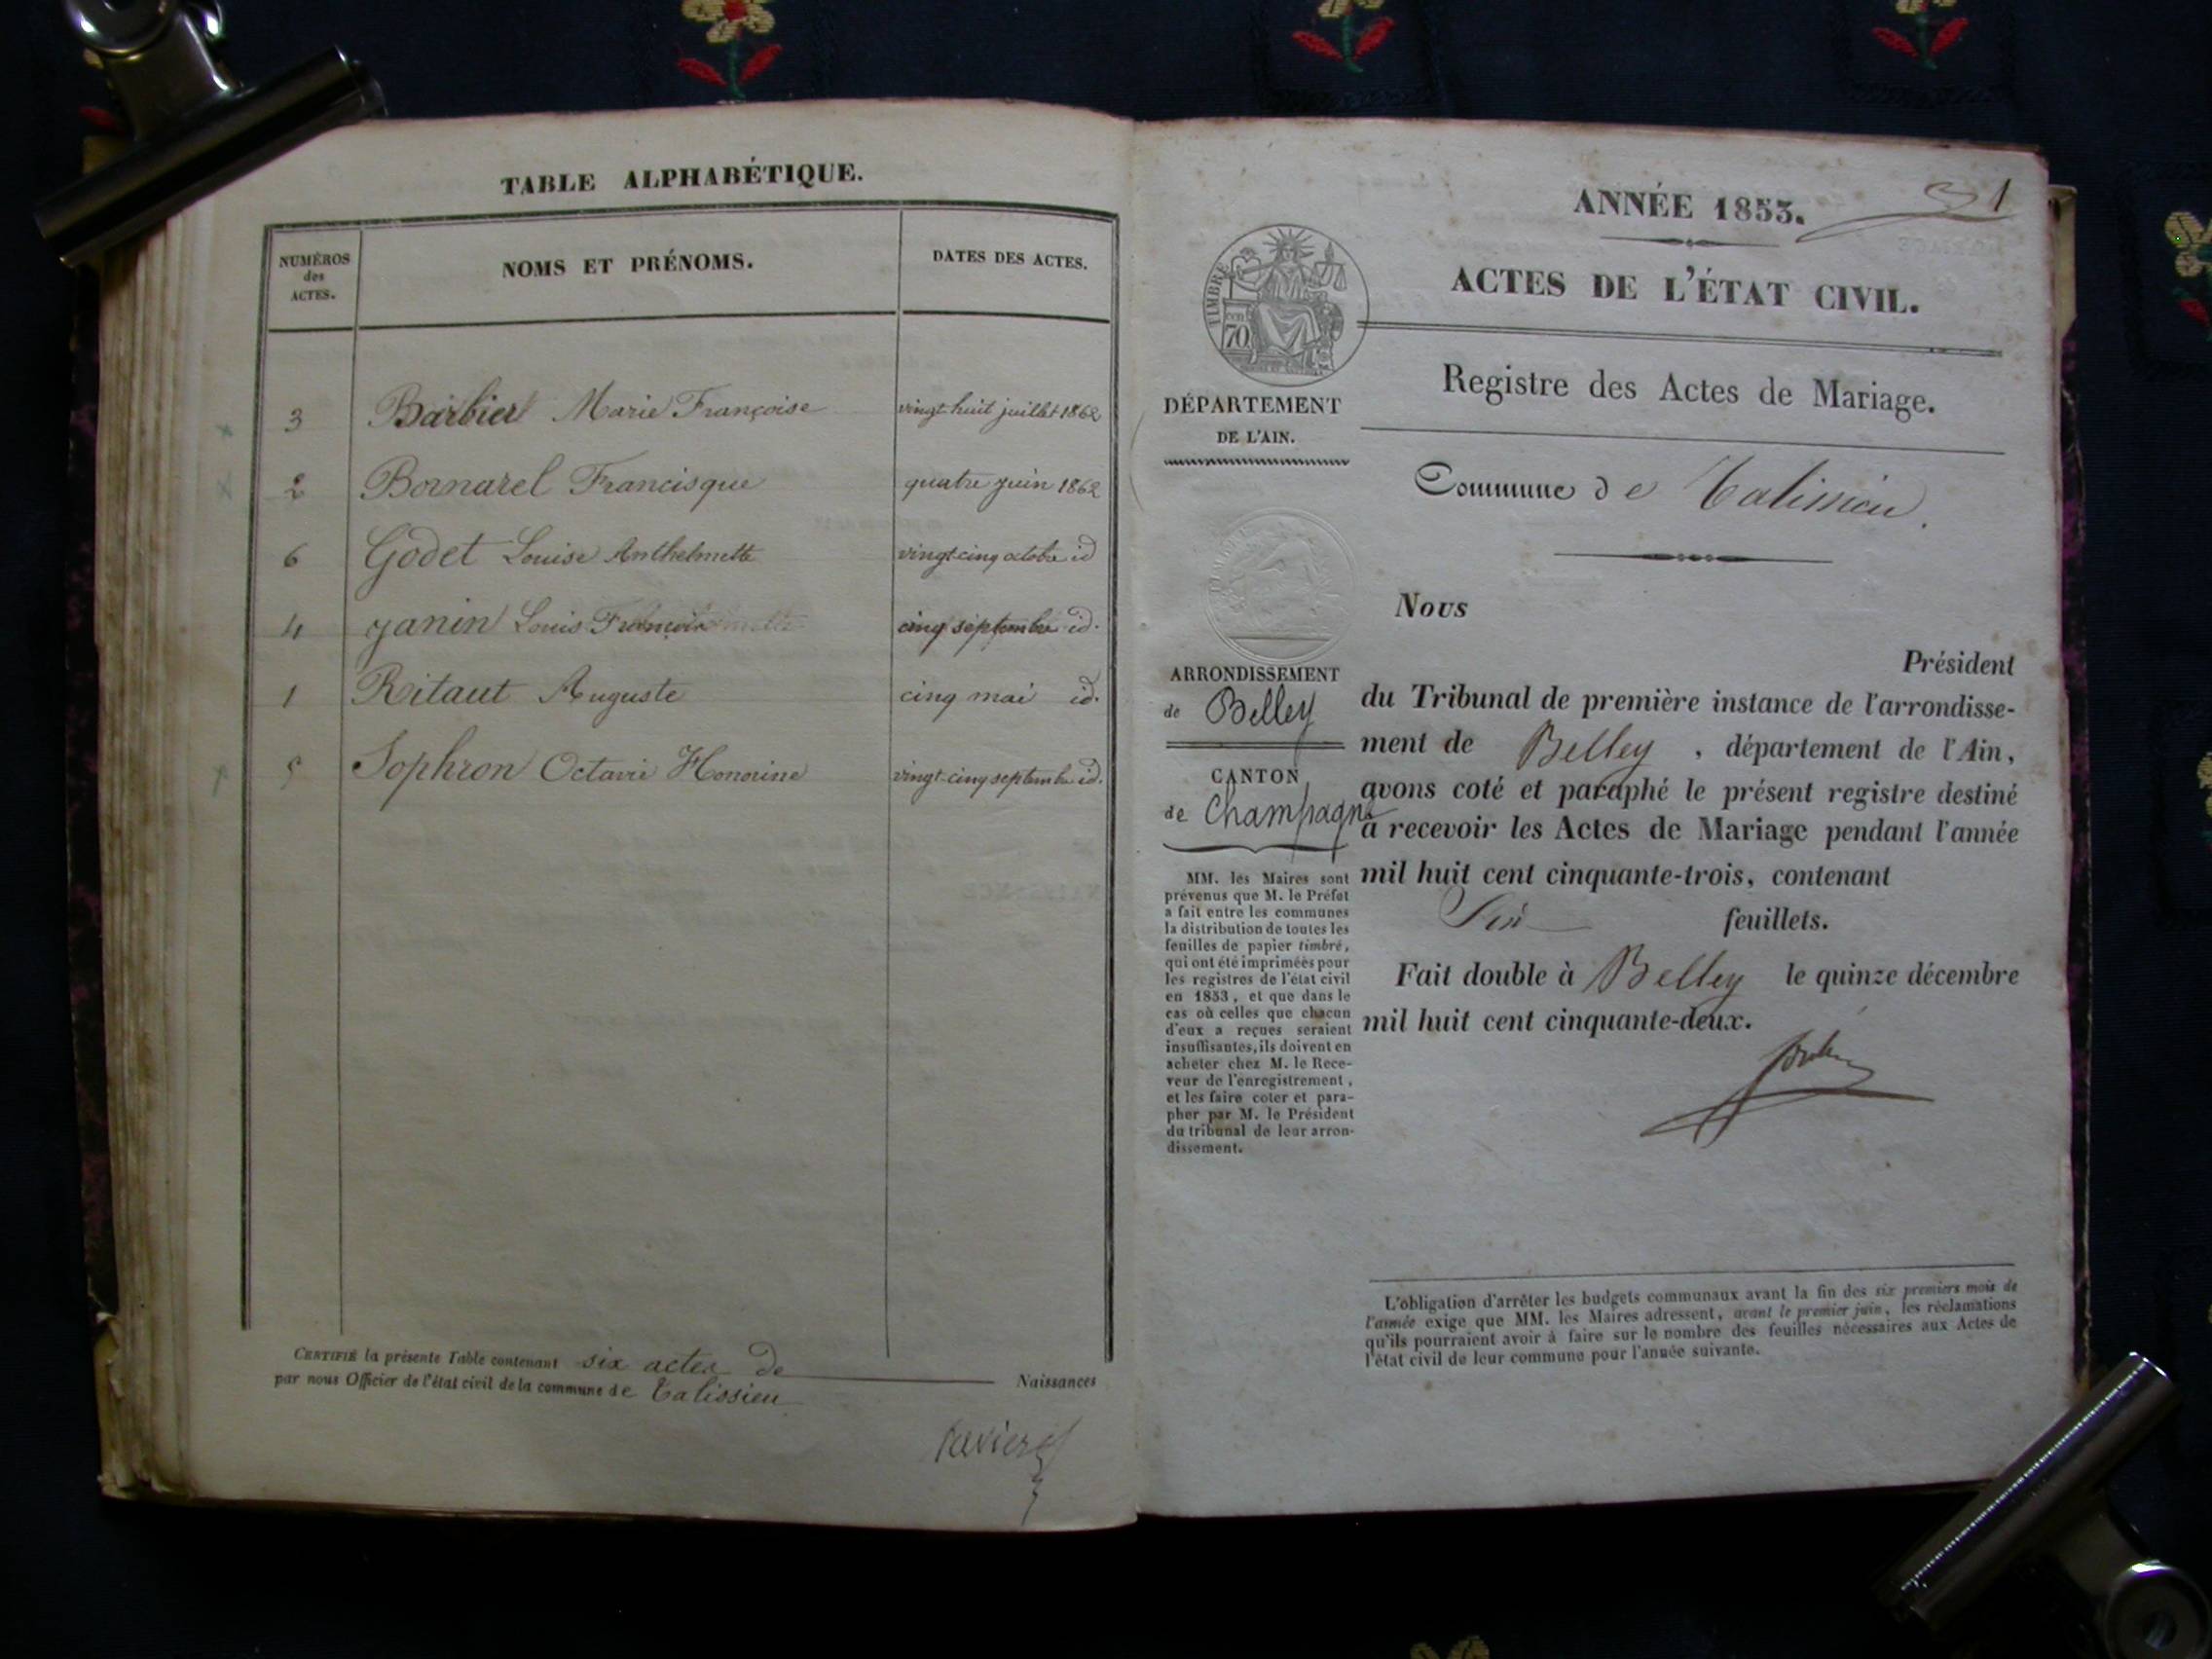 TABLE ALPHABÉTIQUE.
NUMÉROS
des
ACTES.
NOMS ET PRÉNOMS.
DATES DES ACTES.
3 Barbier Marie Françoise vingt huit juillet 1862
2 Bornarel Francisque quatre juin 1862
6 Godet Louise Anthelmette vingt cinq octobre id
4 Janin Louis François cinq septembre id.
1 Ritaut Auguste cinq mai id.
5 Sophron Octavie Honorine vingt-cinq septembre id.
CERTIFIÉ la présente Table contenant six actes de Naissances
par nous Officier de l'état civil de la commune de Talissieu
1
ANNÉE 1853.
ACTES DE L'ÉTAT CIVIL.
Registre des Actes de Mariage.
TIMBRE
70
DÉPARTEMENT
DE L'AIN.
Commune de Talissieu.
ARRONDISSEMENT
de Belley
CANTON
de Champagne
MM. les Maires sont
prévenus que M. le Préfet
a fait entre les communes
la distribution de toutes les
feuilles de papier timbré,
qui ont été imprimées pour
les registres de l'état civil
en 1853, et que dans le
cas où celles que chacun
d'eux a reçues seraient
insuffisantes, ils doivent en
acheter chez M. le Rece-
veur de l'enregistrement,
et les faire coter et para-
pher par M. le Président
du tribunal de leur arron-
dissement.
Nous
Président
du Tribunal de première instance de l'arrondisse-
ment de Belley , département de l'Ain,
avons coté et paraphé le présent registre destiné
à recevoir les Actes de Mariage pendant l'année
mil huit cent cinquante-trois, contenant
Six feuillets.
Fait double à Belley le quinze décembre
mil huit cent cinquante-deux.
L'obligation d'arrêter les budgets communaux avant la fin des six premiers mois de
l'année exige que MM. les Maires adressent, avant le premier juin, les réclamations
qu'ils pourraient avoir à faire sur le nombre des feuilles nécessaires aux Actes de
l'état civil de leur commune pour l'année suivante.